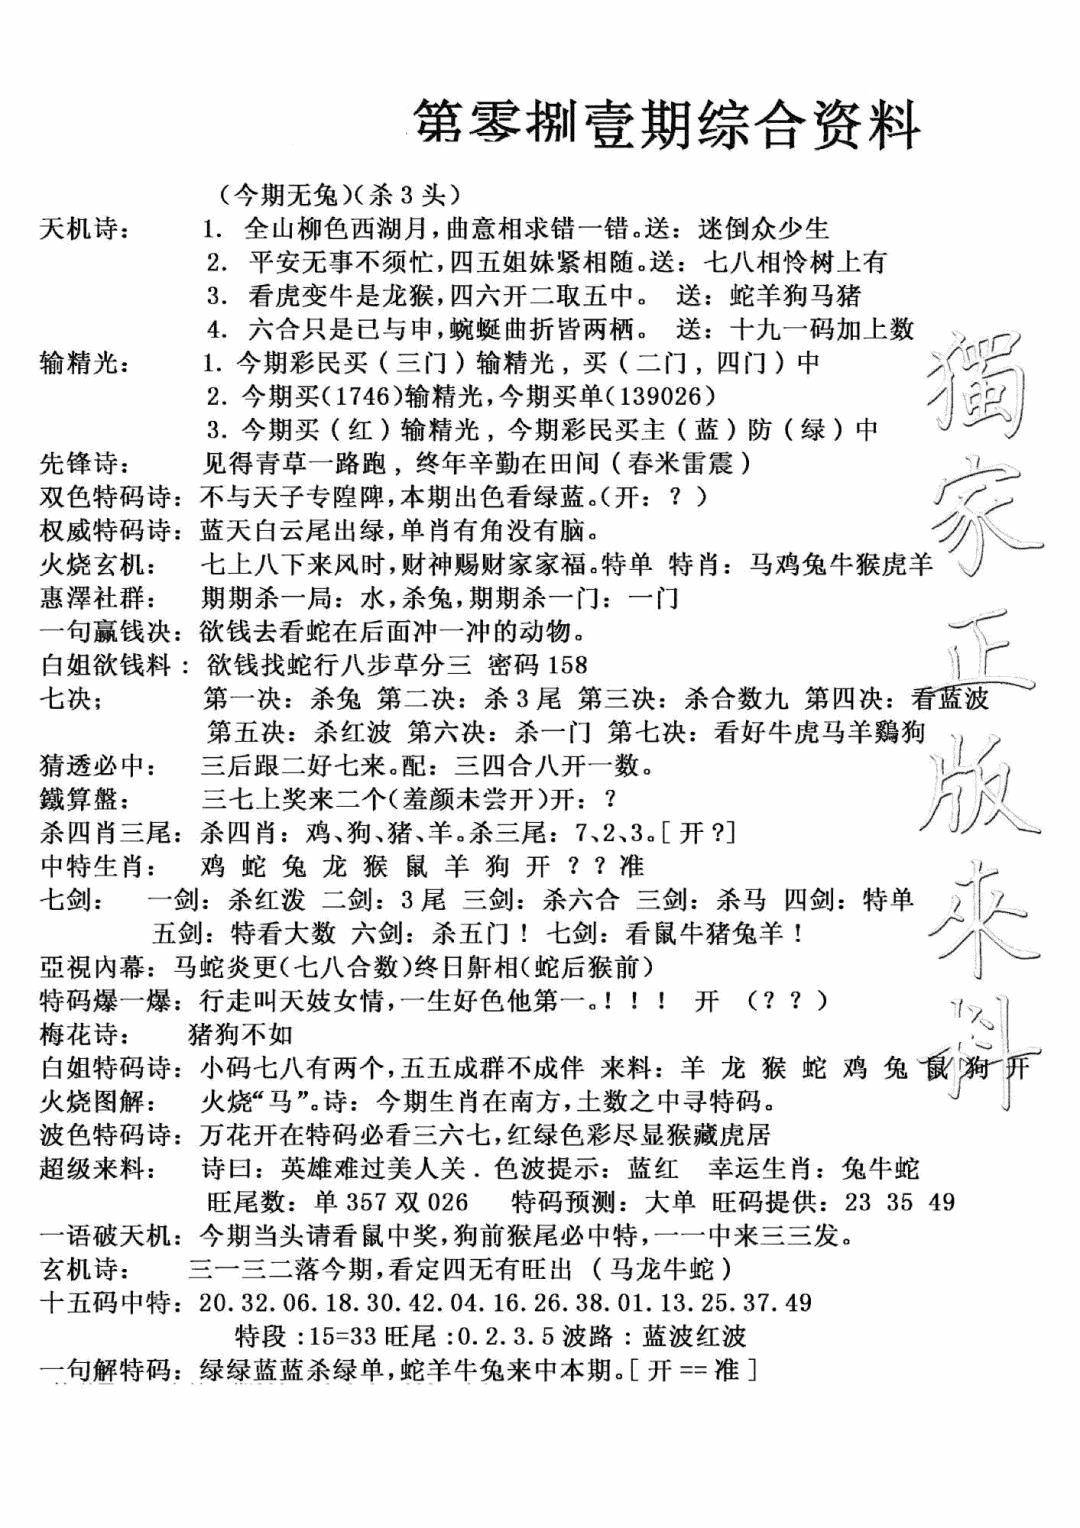 第零捌壹期综合资料
（今期无兔）（杀3头）
天机诗： 1. 全山柳色西湖月，曲意相求错一错。送：迷倒众少生
2. 平安无事不须忙，四五姐妹紧相随。送：七八相怜树上有
3. 看虎变牛是龙猴，四六开二取五中。 送：蛇羊狗马猪
4. 六合只是已与申，蜿蜒曲折皆两栖。 送：十九一码加上数
输精光： 1. 今期彩民买（三门）输精光，买（二门，四门）中
2. 今期买(1746)输精光，今期买单(139026)
3. 今期买（红）输精光，今期彩民买主（蓝）防（绿）中
先锋诗： 见得青草一路跑，终年辛勤在田间（春米雷震）
双色特码诗：不与天子专隍陴，本期出色看绿蓝。（开：？）
权威特码诗：蓝天白云尾出绿，单肖有角没有脑。
火烧玄机： 七上八下来风时，财神赐财家家福。特单 特肖：马鸡兔牛猴虎羊
惠澤社群： 期期杀一局：水，杀兔，期期杀一门：一门
一句赢钱决：欲钱去看蛇在后面冲一冲的动物。
白姐欲钱料：欲钱找蛇行八步草分三 密码158
七决； 第一决：杀兔 第二决：杀3尾 第三决：杀合数九 第四决：看蓝波
第五决：杀红波 第六决：杀一门 第七决：看好牛虎马羊鷄狗
猜透必中： 三后跟二好七来。配：三四合八开一数。
鐵算盤： 三七上奖来二个（羞颜未尝开）开：？
杀四肖三尾：杀四肖：鸡、狗、猪、羊。杀三尾：7、2、3。[开?]
中特生肖： 鸡 蛇 兔 龙 猴 鼠 羊 狗 开 ？？准
七剑： 一剑：杀红泼 二剑：3尾 三剑：杀六合 三剑：杀马 四剑：特单
五剑：特看大数 六剑：杀五门！七剑：看鼠牛猪兔羊！
亞視內幕：马蛇炎更（七八合数）终日鼾相（蛇后猴前）
特码爆一爆：行走叫天妓女情，一生好色他第一。！！！ 开 （？？）
梅花诗： 猪狗不如
白姐特码诗：小码七八有两个，五五成群不成伴 来料：羊 龙 猴 蛇 鸡 兔 鼠 狗 开
火烧图解： 火烧“马”。诗：今期生肖在南方，土数之中寻特码。
波色特码诗：万花开在特码必看三六七，红绿色彩尽显猴藏虎居
超级来料： 诗曰：英雄难过美人关．色波提示：蓝红 幸运生肖：兔牛蛇
旺尾数：单357双026 特码预测：大单 旺码提供：23 35 49
一语破天机：今期当头请看鼠中奖，狗前猴尾必中特，一一中来三三发。
玄机诗： 三一三二落今期，看定四无有旺出 （马龙牛蛇）
十五码中特：20.32.06.18.30.42.04.16.26.38.01.13.25.37.49
特段：15=33旺尾：0.2.3.5波路：蓝波红波
一句解特码：绿绿蓝蓝杀绿单，蛇羊牛兔来中本期。[开==准]
獨家正版來料